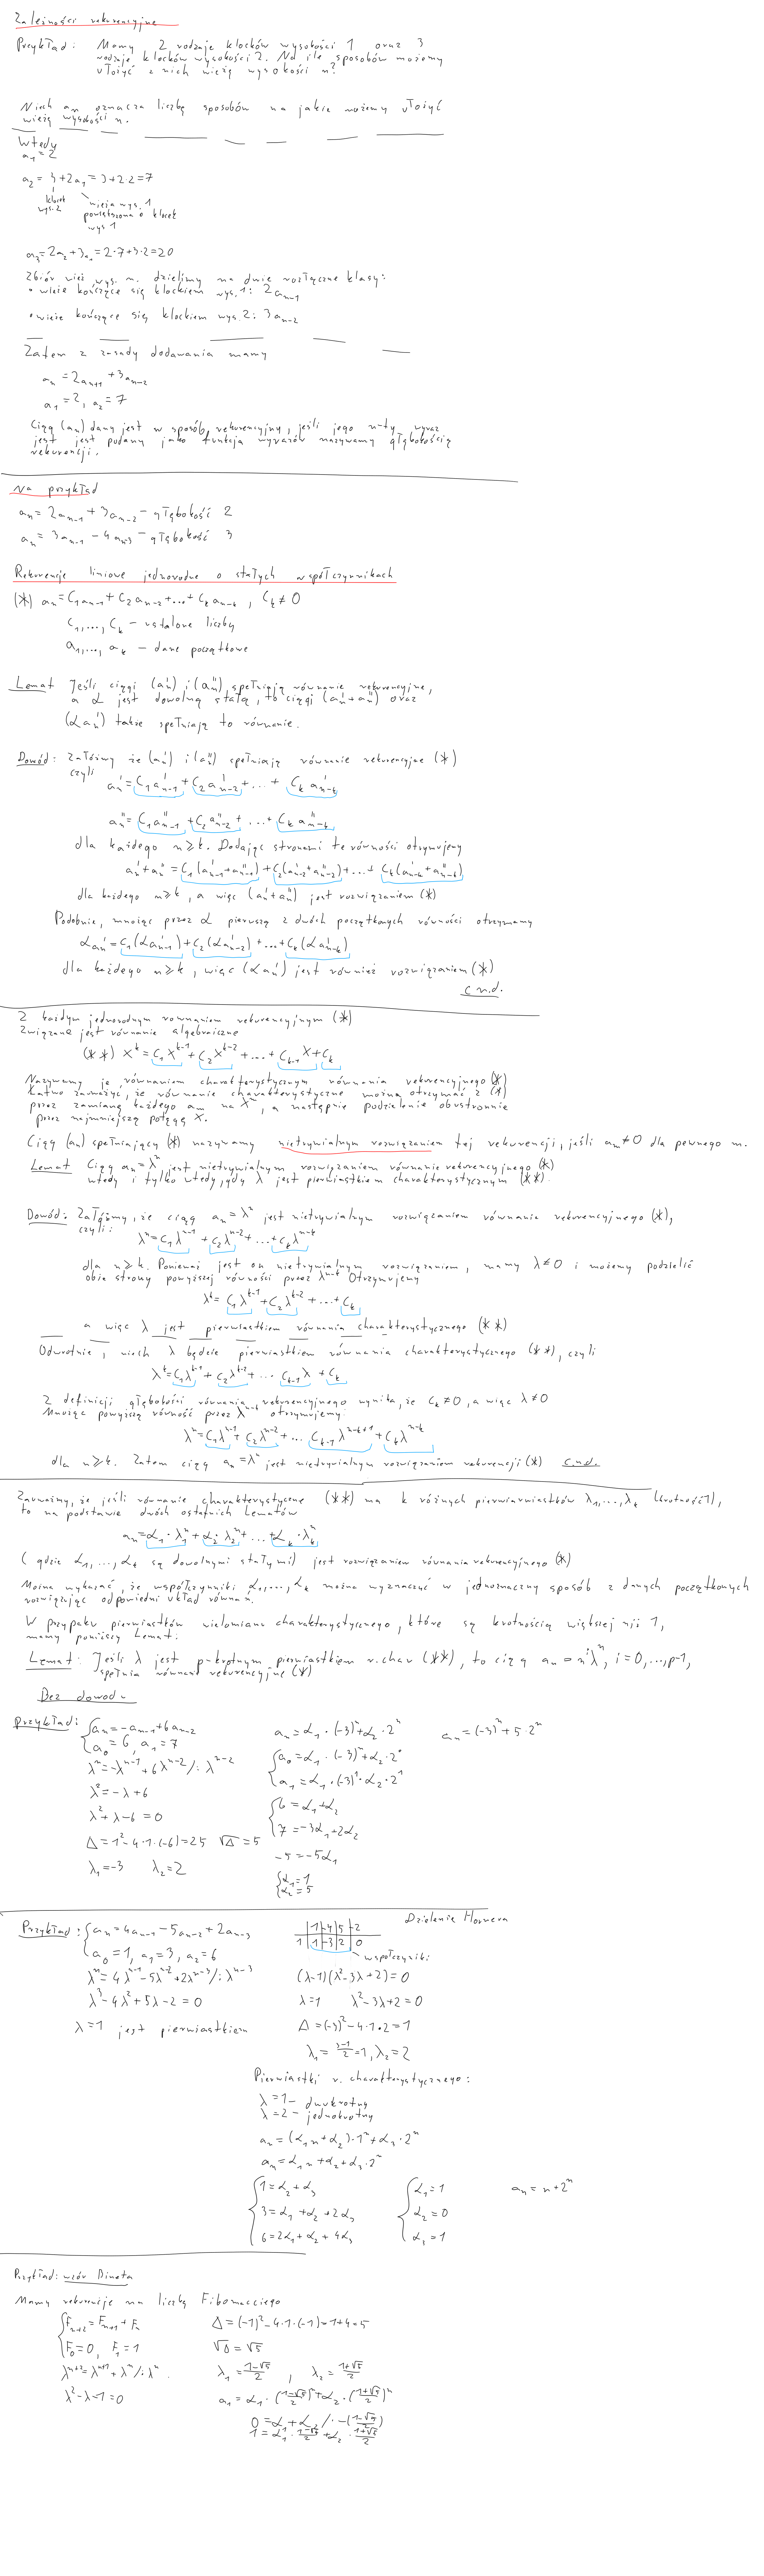 Zależności rekurencyjne
Przykład: Mamy 2 rodzaje klocków wysokości 1 oraz 3
rodzaje klocków wysokości 2. Na ile sposobów możemy
ułożyć z nich wieżę wysokości n?
Niech aₙ oznacza liczbę sposobów na jakie możemy ułożyć
wieżę wysokości n.
Wtedy
a₁=2
a₂=3+2a₁=3+2·2=7
klocek wys. 2
wieża wys. 1
powiększona o klocek
wys 1
a₃=2a₂+3a₁=2·7+3·2=20
Zbiór wież wys. n. dzielimy na dwie rozłączne klasy:
• wieże kończące się klockiem wys. 1: 2aₙ₋₁
• wieże kończące się klockiem wys. 2: 3aₙ₋₂
Zatem z zasady dodawania mamy
aₙ=2aₙ₊₁+3aₙ₋₂
a₁=2, a₂=7
Ciąg (aₙ) dany jest w sposób rekurencyjny, jeśli jego n-ty wyraz
jest jest podany jako funkcja wyrazów nazywamy głębokością
rekurencji.
Na przykład
aₙ=2aₙ₋₁+3aₙ₋₂ - głębokość 2
aₙ=3aₙ₋₁-4aₙ₋₃ - głębokość 3
Rekurencje liniowe jednorodne o stałych współczynnikach
(*) aₙ=C₁aₙ₋₁+C₂aₙ₋₂+...+Cₖaₙ₋ₖ, Cₖ≠0
C₁,...,Cₖ - ustalone liczby
a₁,...,aₖ - dane początkowe
Lemat Jeśli ciągi (aₙ') i (aₙ'') spełniają równanie rekurencyjne,
a α jest dowolną stałą, to ciągi (aₙ'+aₙ'') oraz
(αaₙ') także spełniają to równanie.
Dowód: Załóżmy że (aₙ') i (aₙ'') spełniają równanie rekurencyjne (*)
czyli
aₙ'=C₁a'ₙ₋₁+C₂a'ₙ₋₂+...+Cₖa'ₙ₋ₖ
aₙ''=C₁a''ₙ₋₁+C₂a''ₙ₋₂+...+Cₖa''ₙ₋ₖ
dla każdego n≥k. Dodając stronami te równości otrzymujemy
aₙ'+aₙ''=C₁(a'ₙ₋₁+a''ₙ₋₁)+C₂(a'ₙ₋₂+a''ₙ₋₂)+...+Cₖ(a'ₙ₋ₖ+a''ₙ₋ₖ)
dla każdego n≥k, a więc (aₙ'+aₙ'') jest rozwiązaniem (*)
Podobnie, mnożąc przez α pierwszą z dwóch początkowych równości otrzymamy
αaₙ'=C₁(αa'ₙ₋₁)+C₂(αa'ₙ₋₂)+...+Cₖ(αa'ₙ₋ₖ)
dla każdego n≥k, więc (αaₙ') jest również rozwiązaniem (*)
c.n.d.
Z każdym jednorodnym równaniem rekurencyjnym (*)
związane jest równanie algebraiczne
(**) xᵏ=C₁xᵏ⁻¹+C₂xᵏ⁻²+...+Cₖ₋₁x+Cₖ
Nazywamy je równaniem charakterystycznym równania rekurencyjnego (*)
Łatwo zauważyć, że równanie charakterystyczne można otrzymać z (*)
przez zamianę każdego aₘ na xᵐ, a następnie podzielenie obustronnie
przez najmniejszą potęgę x.
Ciąg (aₙ) spełniający (*) nazywamy nietrywialnym rozwiązaniem tej rekurencji, jeśli aₘ≠0 dla pewnego m.
Lemat Ciąg aₙ=λⁿ jest nietrywialnym rozwiązaniem równanie rekurencyjnego (*)
wtedy i tylko wtedy, gdy λ jest pierwiastkiem charakterystycznym (**).
Dowód: Załóżmy, że ciąg aₙ=λⁿ jest nietrywialnym rozwiązaniem równania rekurencyjnego (*),
czyli:
λⁿ=C₁λⁿ⁻¹+C₂λⁿ⁻²+...+Cₖλⁿ⁻ᵏ
dla n≥k. Ponieważ jest on nietrywialnym rozwiązaniem, mamy λ≠0 i możemy podzielić
obie strony powyższej równości przez λⁿ⁻ᵏ Otrzymujemy
λᵏ=C₁λᵏ⁻¹+C₂λᵏ⁻²+...+Cₖ
a więc λ jest pierwiastkiem równania charakterystycznego (**)
Odwrotnie, niech λ będzie pierwiastkiem równania charakterystycznego (**), czyli
λᵏ=C₁λᵏ⁻¹+C₂λᵏ⁻²+...Cₖ₋₁λ+Cₖ
Z definicji głębokości równania rekurencyjnego wynika, że Cₖ≠0, a więc λ≠0
Mnożąc powyższą równość przez λⁿ⁻ᵏ otrzymujemy:
λⁿ=C₁λⁿ⁻¹+C₂λⁿ⁻²+...Cₖ₋₁λⁿ⁻ᵏ⁺¹+Cₖλⁿ⁻ᵏ
dla n≥k. Zatem ciąg aₙ=λⁿ jest nietrywialnym rozwiązaniem rekurencji (*) c.n.d.
Zauważmy, że jeśli równanie charakterystyczne (**) ma k różnych pierwiarniastków λ₁,...,λₖ (krotność 1),
to na podstawie dwóch ostatnich Lematów
aₙ=α₁·λ₁ⁿ+α₂·λ₂ⁿ+...+αₖ·λₖⁿ
(gdzie α₁,...,αₖ są dowolnymi stałymi) jest rozwiązaniem równania rekurencyjnego (*)
Można wykazać, że współczynniki α₁,...,αₖ można wyznaczyć w jednoznaczny sposób z danych początkowych
rozwiązując odpowiedni układ równań.
W przypaku pierwiastków wielomianu charakterystycznego, które są krotnością większej niż 1,
mamy poniższy Lemat:
Lemat: Jeśli λ jest p-krotnym pierwiastkiem r. char (**), to ciąg aₙ=nⁱλⁿ, i=0,...,p-1,
spełnia równanie rekurencyjne (*)
Bez dowodu
Przykład: aₙ=-aₙ₋₁+6aₙ₋₂
a₀=6, a₁=7
λⁿ=-λⁿ⁻¹+6λⁿ⁻² /: λⁿ⁻²
λ²=-λ+6
λ²+λ-6=0
Δ=1²-4·1·(-6)=25 √Δ=5
λ₁=-3 λ₂=2
aₙ=α₁·(-3)ⁿ+α₂·2ⁿ
a₀=α₁·(-3)⁰+α₂·2⁰
a₁=α₁·(-3)¹·α₂·2¹
6=α₁+α₂
7=-3α₁+2α₂
-5=-5α₁
α₁=1
α₂=5
aₙ=(-3)ⁿ+5·2ⁿ
Przykład: aₙ=4aₙ₋₁-5aₙ₋₂+2aₙ₋₃
a₀=1, a₁=3, a₂=6
λⁿ=4λⁿ⁻¹-5λⁿ⁻²+2λⁿ⁻³ /: λⁿ⁻³
λ³-4λ²+5λ-2=0
λ=1 jest pierwiastkiem
Dzielenie Hornera
1 -4 5 -2
1 1 -3 2 0
współczynniki
(λ-1)(λ²-3λ+2)=0
λ=1 λ²-3λ+2=0
Δ=(-3)²-4·1·2=1
λ₁=(3-1)/2=1, λ₂=2
Pierwiastki r. charakterystycznego:
λ=1 - dwukrotny
λ=2 - jednokrotny
aₙ=(α₁n+α₂)·1ⁿ+α₃·2ⁿ
aₙ=α₁n+α₂+α₃·2ⁿ
1=α₂+α₃
3=α₁+α₂+2α₃
6=2α₁+α₂+4α₃
α₁=1
α₂=0
α₃=1
aₙ=n+2ⁿ
Przykład: wzór Bineta
Mamy rekurencje na liczbę Fibonacciego
Fₙ₊₂=Fₙ₊₁+Fₙ
F₀=0, F₁=1
λⁿ⁺²=λⁿ⁺¹+λⁿ /: λⁿ
λ²-λ-1=0
Δ=(-1)²-4·1·(-1)=1+4=5
√Δ=√5
λ₁=(1-√5)/2, λ₂=(1+√5)/2
a₁=α₁·((1-√5)/2)ⁿ+α₂·((1+√5)/2)ⁿ
0=α₁+α₂ /·-((1-√5)/2)
1=α₁·(1-√5)/2+α₂·(1+√5)/2